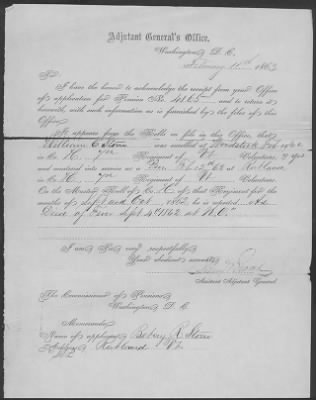 Adjutant General's Office,
Washington, D. C.
February 1863
Sir:
I have the honor to acknowledge the receipt from your Office
of application for Pension No. 4865, and to return it
herewith, with such information as is furnished by the files of this
Office.
It appears from the Rolls on file in this Office, that
William C. Stone was enrolled at Woodstock Feb
in Co. 7th Regiment of Vt Volunteers,
and mustered into service as a Feb 12th 62 at Rutland
in Co. 7th Regiment of Vt. Volunteers.
On the Muster Roll of Co. C of that Regiment for the
months of Sept and Oct, 1862, he is reported
Died of Fever Sept 4th 1862 at N.O.
I am Sir, very respectfully,
Your obedient servant,
Assistant Adjutant General.
The Commissioner of Pensions,
Washington, D. C.
Memoranda:
Name of applicant, Betsey R. Stone
Address, Rutland Vt